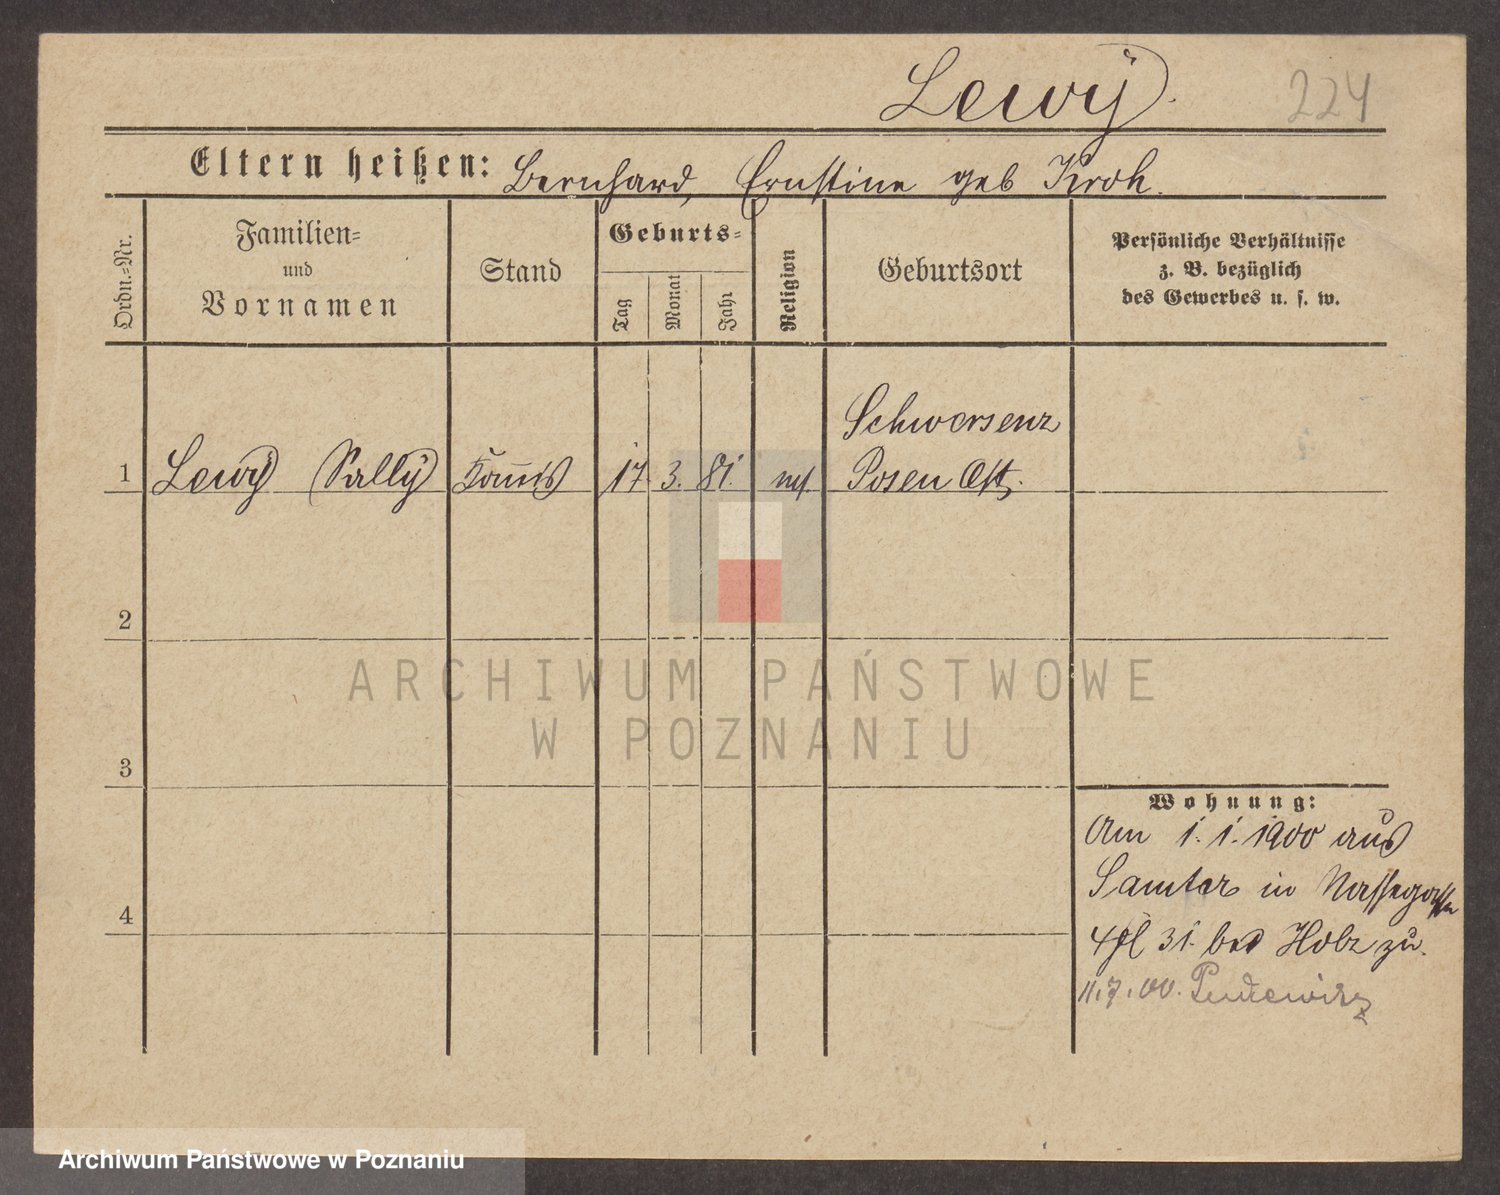 Lewy.
224
Eltern heißen: Bernhard, Ernstine geb Kroh.
Ordn.=Nr.
Familien=
und
Vornamen
Stand
Geburts=
Tag
Monat
Jahr
Religion
Geburtsort
Persönliche Verhältnisse
z. B. bezüglich
des Gewerbes u. s. w.
Schwersenz
1 Lewy Sally Kom̅is 17. 3. 81. Posen Ost.
2
3
4
Wohnung:
Am 1. 1. 1900 aus
Samter in Nassegasse
31. bei Holz zu.
11.7.00. Pudewitz
ARCHIWUM PAŃSTWOWE
W POZNANIU
Archiwum Państwowe w Poznaniu